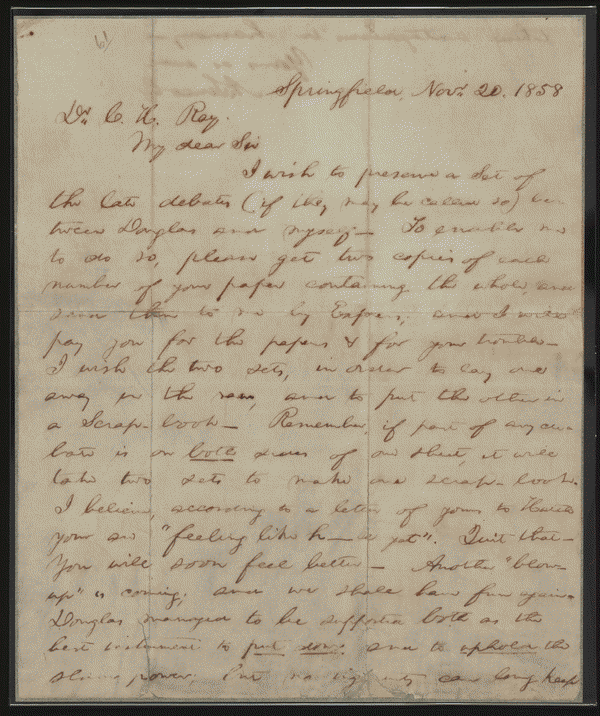 Springfield, Nov. 20. 1858
Dr. C. H. Ray.
My dear Sir
I wish to preserve a Set of
the late debates (if they may be called so) be-
tween Douglas and myself— To enable me
to do so, please get two copies of each
number of your paper containing the whole, and
send them to me by Express; and I will
pay you for the papers & for your trouble—
I wish the two sets, in order to lay one
away in the raw, and to put the other in
a Scrap-book— Remember, if part of any de-
bate is on both sides of one sheet, it will
take two sets to make one scrap-book.
I believe, according to a letter of yours to Hatch
you are "feeling like h—ll yet". Quit that—
You will soon feel better— Another "blow-
up" is coming; and we shall have fun again.
Douglas managed to be supported both as the
best instrument to put down and to uphold the
slave power; but no ingenuity can long keep